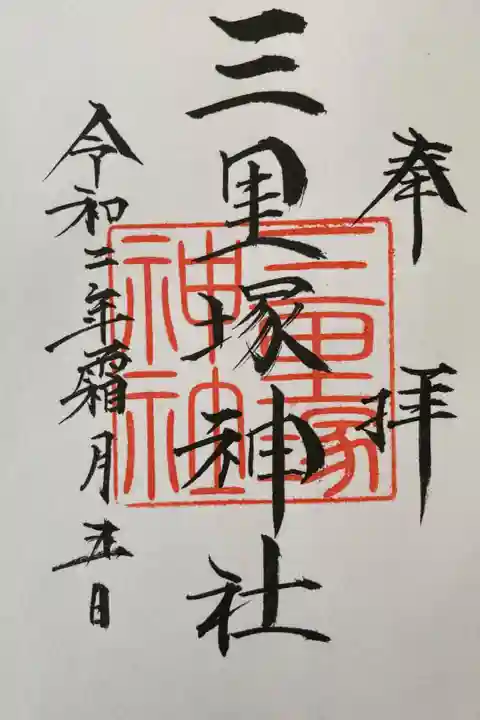 奉拝
三里塚神社
三里塚
神社
令和二年霜月五日